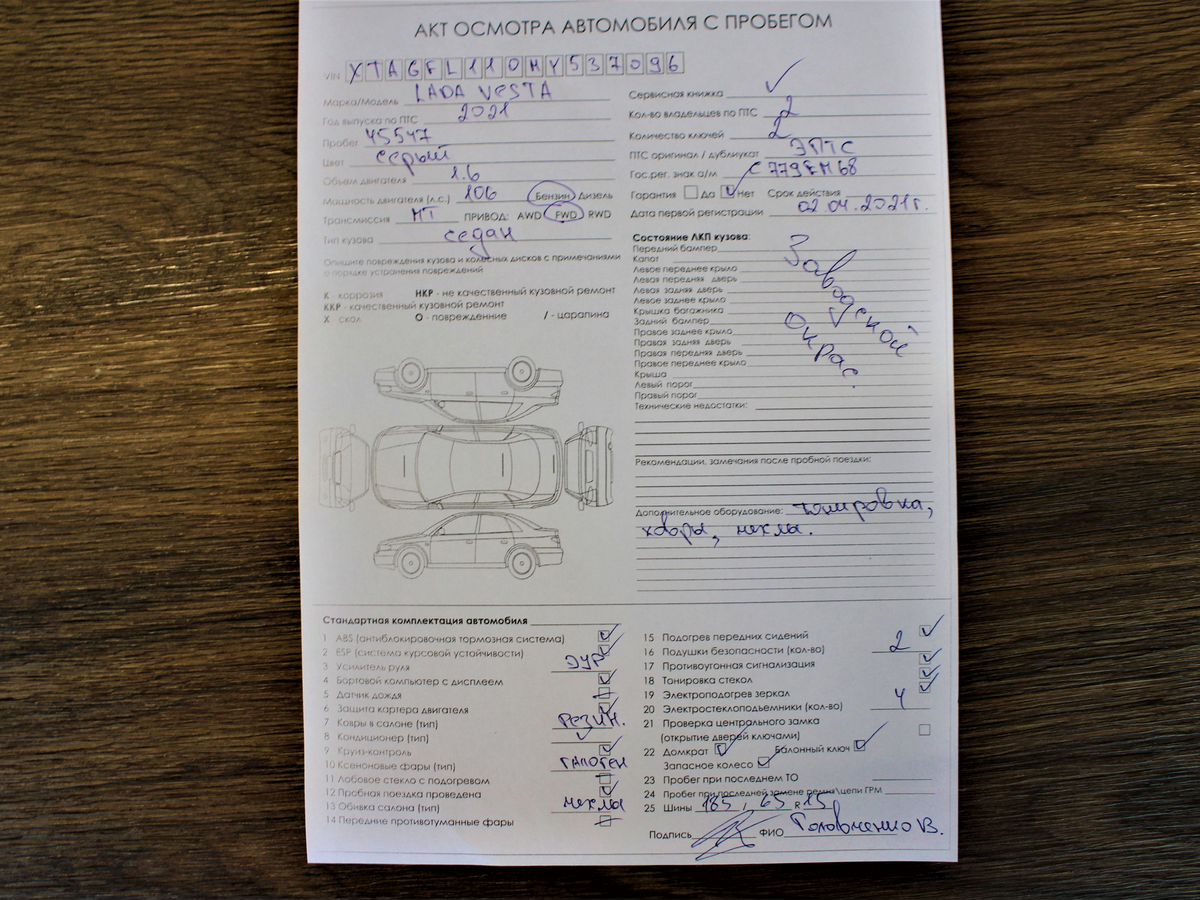 АКТ ОСМОТРА АВТОМОБИЛЯ С ПРОБЕГОМ
VIN XTAGFL110MY537096
Марка/Модель LADA VESTA
Год выпуска по ПТС 2021
Пробег 45547
Цвет серый
Объем двигателя 1.6
Мощность двигателя (л.с.) 106 Бензин Дизель
Трансмиссия МТ ПРИВОД: AWD FWD RWD
Тип кузова седан
Опишите повреждения кузова и колесных дисков с примечаниями
о порядке устранения повреждений
К - коррозия НКР - не качественный кузовной ремонт
ККР - качественный кузовной ремонт
Х - скол О - повреждение / - царапина
Сервисная книжка
Кол-во владельцев по ПТС 2
Количество ключей 2
ПТС оригинал / дубликат ЭПТС
Гос.рег. знак а/м С779ЕМ68
Гарантия Да Нет Срок действия
Дата первой регистрации 02.04.2021г.
Состояние ЛКП кузова:
Передний бампер
Капот
Левое переднее крыло
Левая передняя дверь
Левая задняя дверь
Левое заднее крыло
Крышка багажника
Задний бампер
Правое заднее крыло
Правая задняя дверь
Правая передняя дверь
Правое переднее крыло
Крыша
Левый порог
Правый порог
Заводской
окрас.
Технические недостатки:
Рекомендации, замечания после пробной поездки:
Дополнительное оборудование: тонировка,
ковры, чехлы.
Стандартная комплектация автомобиля
1 ABS (антиблокировачная тормозная система)
2 ESP (система курсовой устойчивости)
3 Усилитель руля ЭУР
4 Бортовой компьютер с дисплеем
5 Датчик дождя
6 Защита картера двигателя
7 Ковры в салоне (тип) Резин.
8 Кондиционер (тип)
9 Круиз-контроль
10 Ксеноновые фары (тип) галоген
11 Лобовое стекло с подогревом
12 Пробная поездка проведена
13 Обивка салона (тип) чехлы
14 Передние противотуманные фары
15 Подогрев передних сидений
16 Подушки безопасности (кол-во) 2
17 Противоугонная сигнализация
18 Тонировка стекол
19 Электроподогрев зеркал
20 Электростеклоподъемники (кол-во) 4
21 Проверка центрального замка
(открытие дверей ключами)
22 Домкрат Балонный ключ
Запасное колесо
23 Пробег при последнем ТО
24 Пробег при последней замене ремня\цепи ГРМ
25 Шины 185, 65 R 15
Подпись ФИО Головченко В.